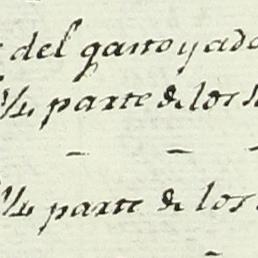 del gasto y
1/4 parte de los
1/4 parte de los